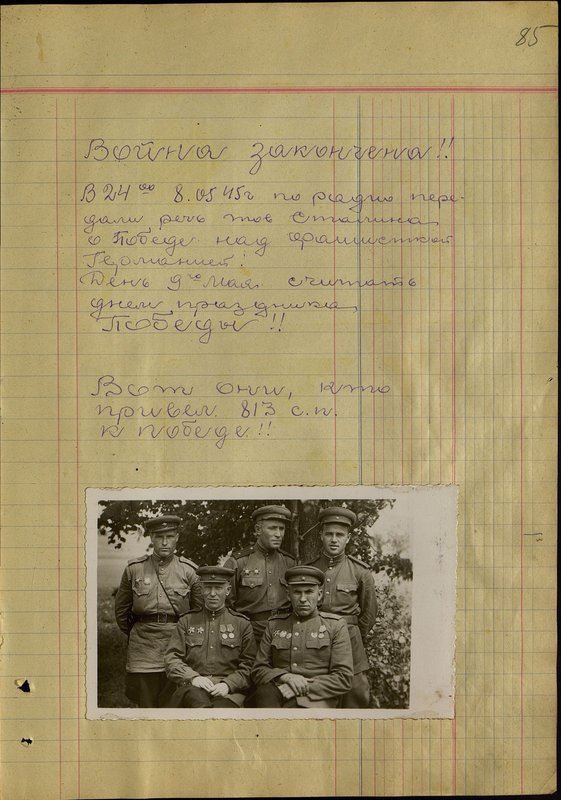 85
Война закончена!!
В 24 оо 8.05 45г по радио пере-
дали речь тов Сталина
о Победе над фашисткой
Германией!
День 9го Мая считать
днем праздника
Победы!!
Вот они, кто
привел 813 с.п.
к победе!!